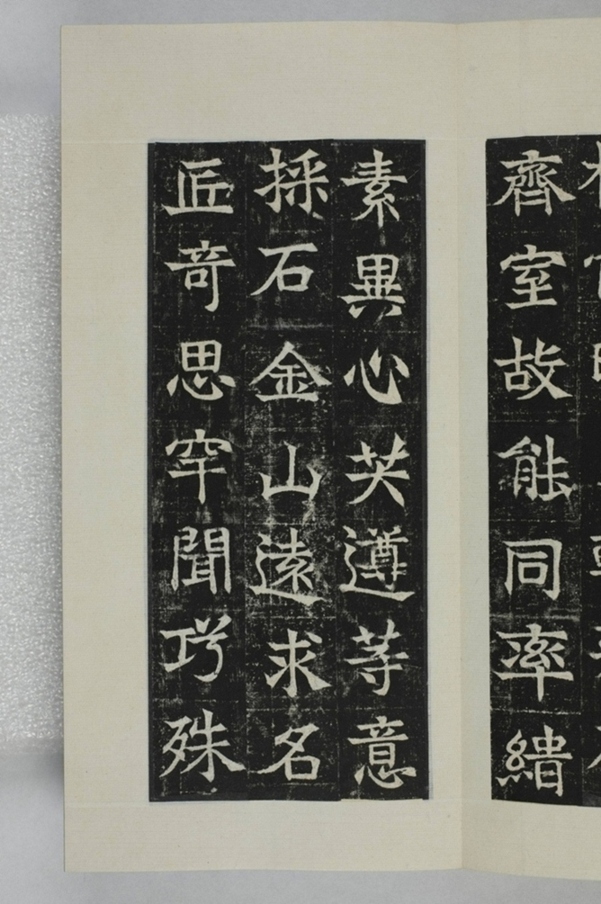 齊室故能同率緇
素異心共遵等意
採石金山遠求名
匠奇思罕聞巧殊